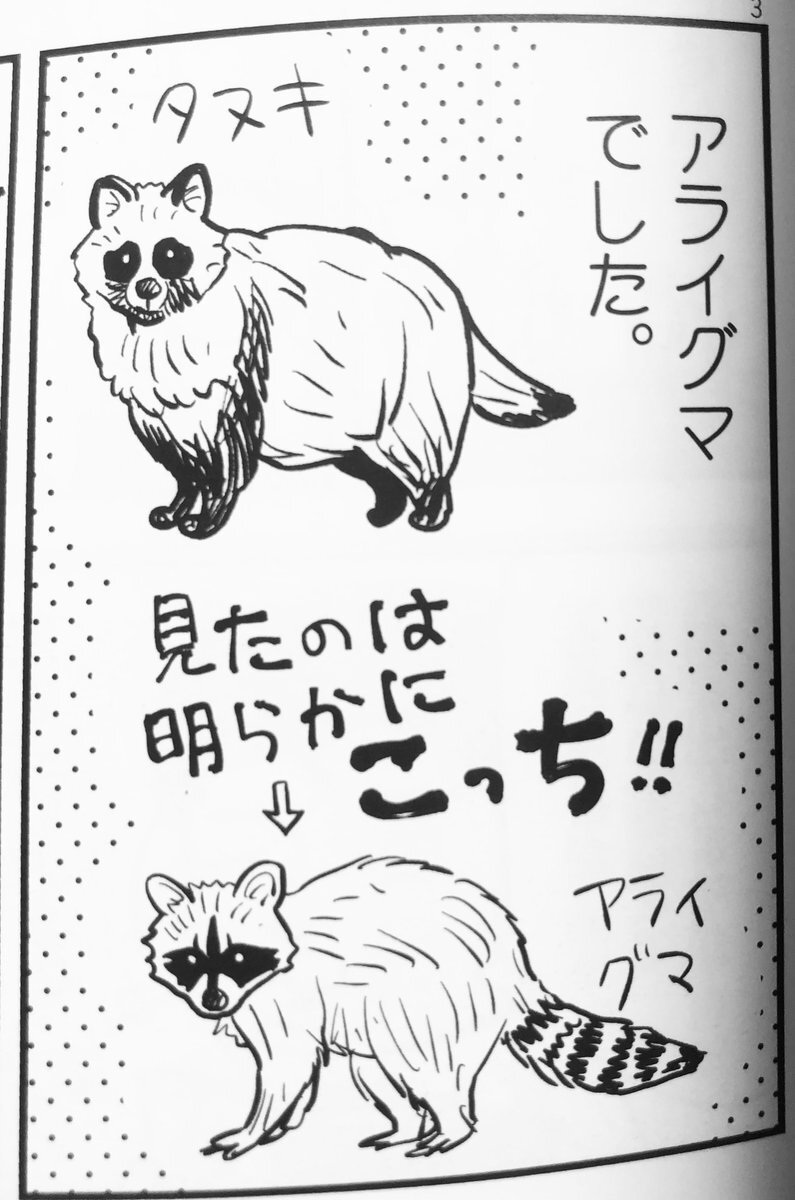 アライグマ
でした。
タヌキ
見たのは
明らかに
こっち!!
アライ
グマ